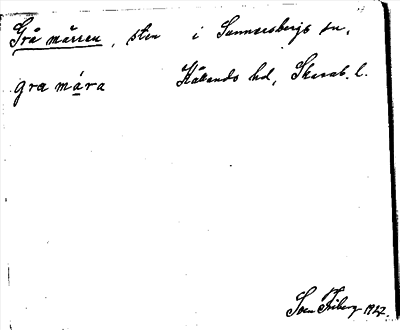 Grå märren, sten i Sunnersbergs sn,
gra mára Kållands hd, Skarab. l.
Sven Friberg 1927.